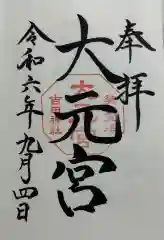 奉拝
大元宮
吉田神社
令和六年九月四日